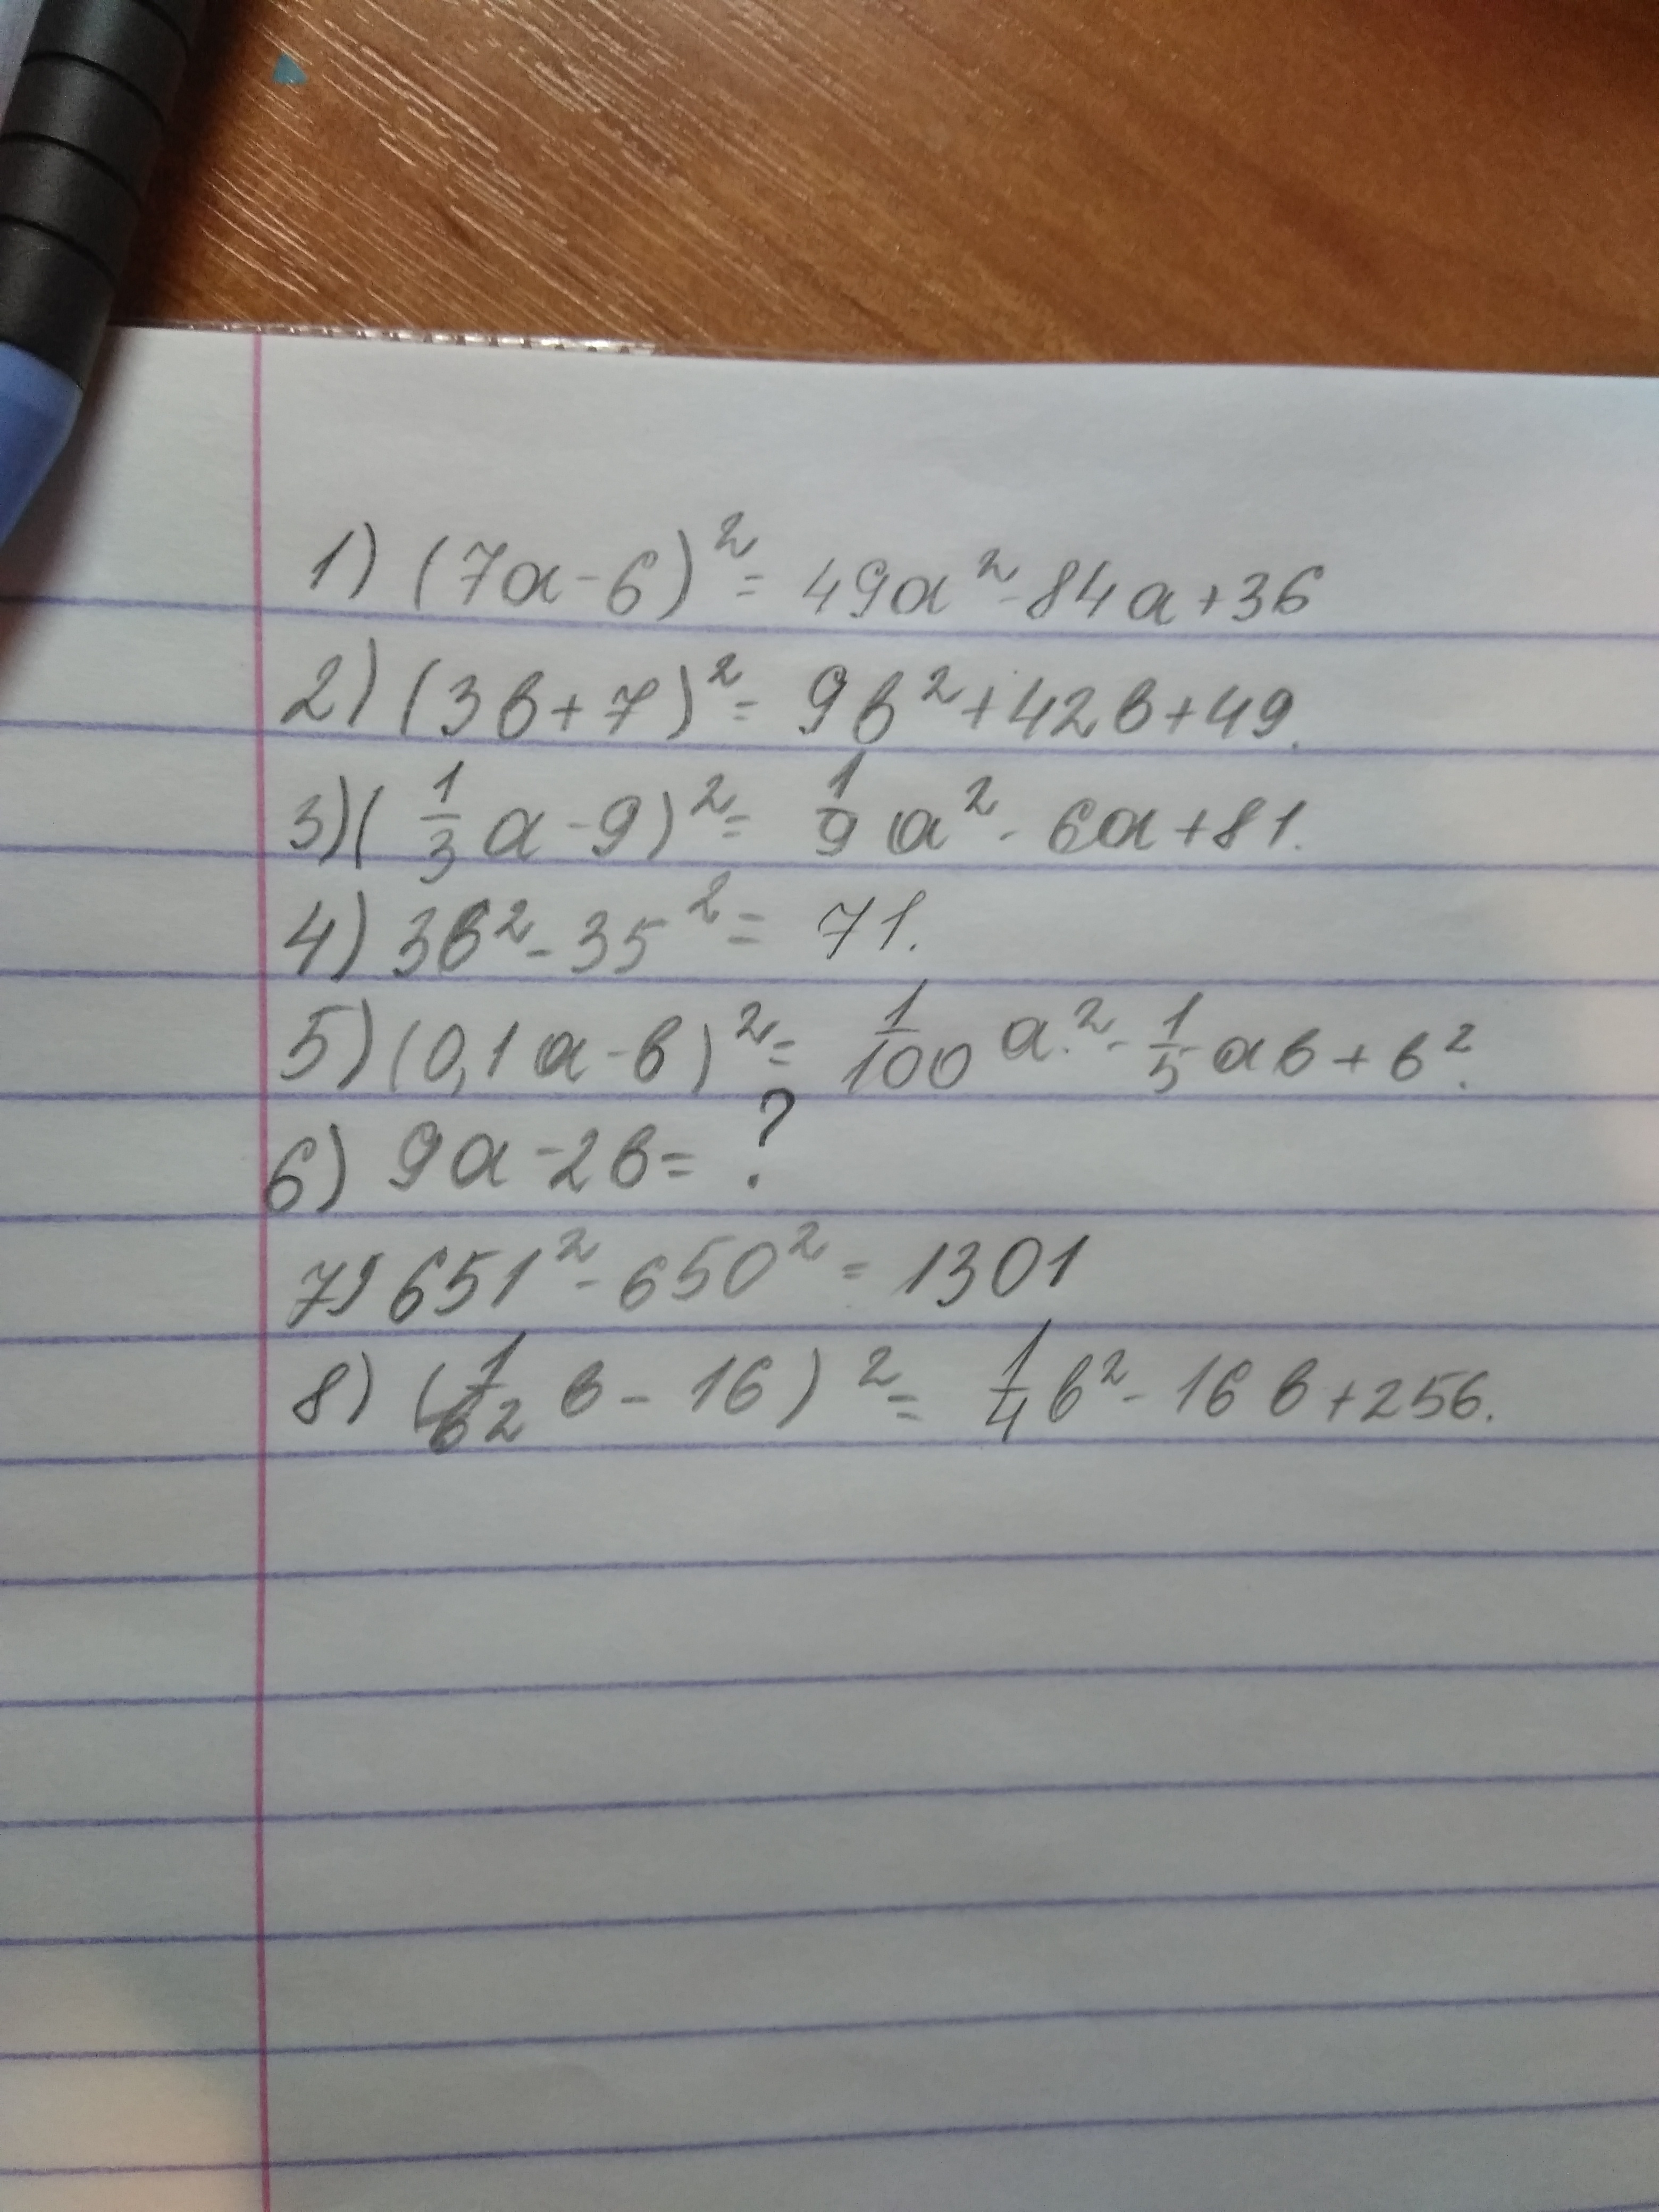 1) (7a-6)²= 49a²-84a+36
2) (3в+7)²= 9в²+42в+49.
3) (1/3 a-9)²= 1/9 a²- 6a+81.
4) 36²-35²= 71.
5) (0,1a-в)²= 1/100 a²- 1/5 aв+в².
6) 9a-2в= ?
7) 651²-650²= 1301
8) (1/2 в-16)²= 1/4 в²- 16в+256.